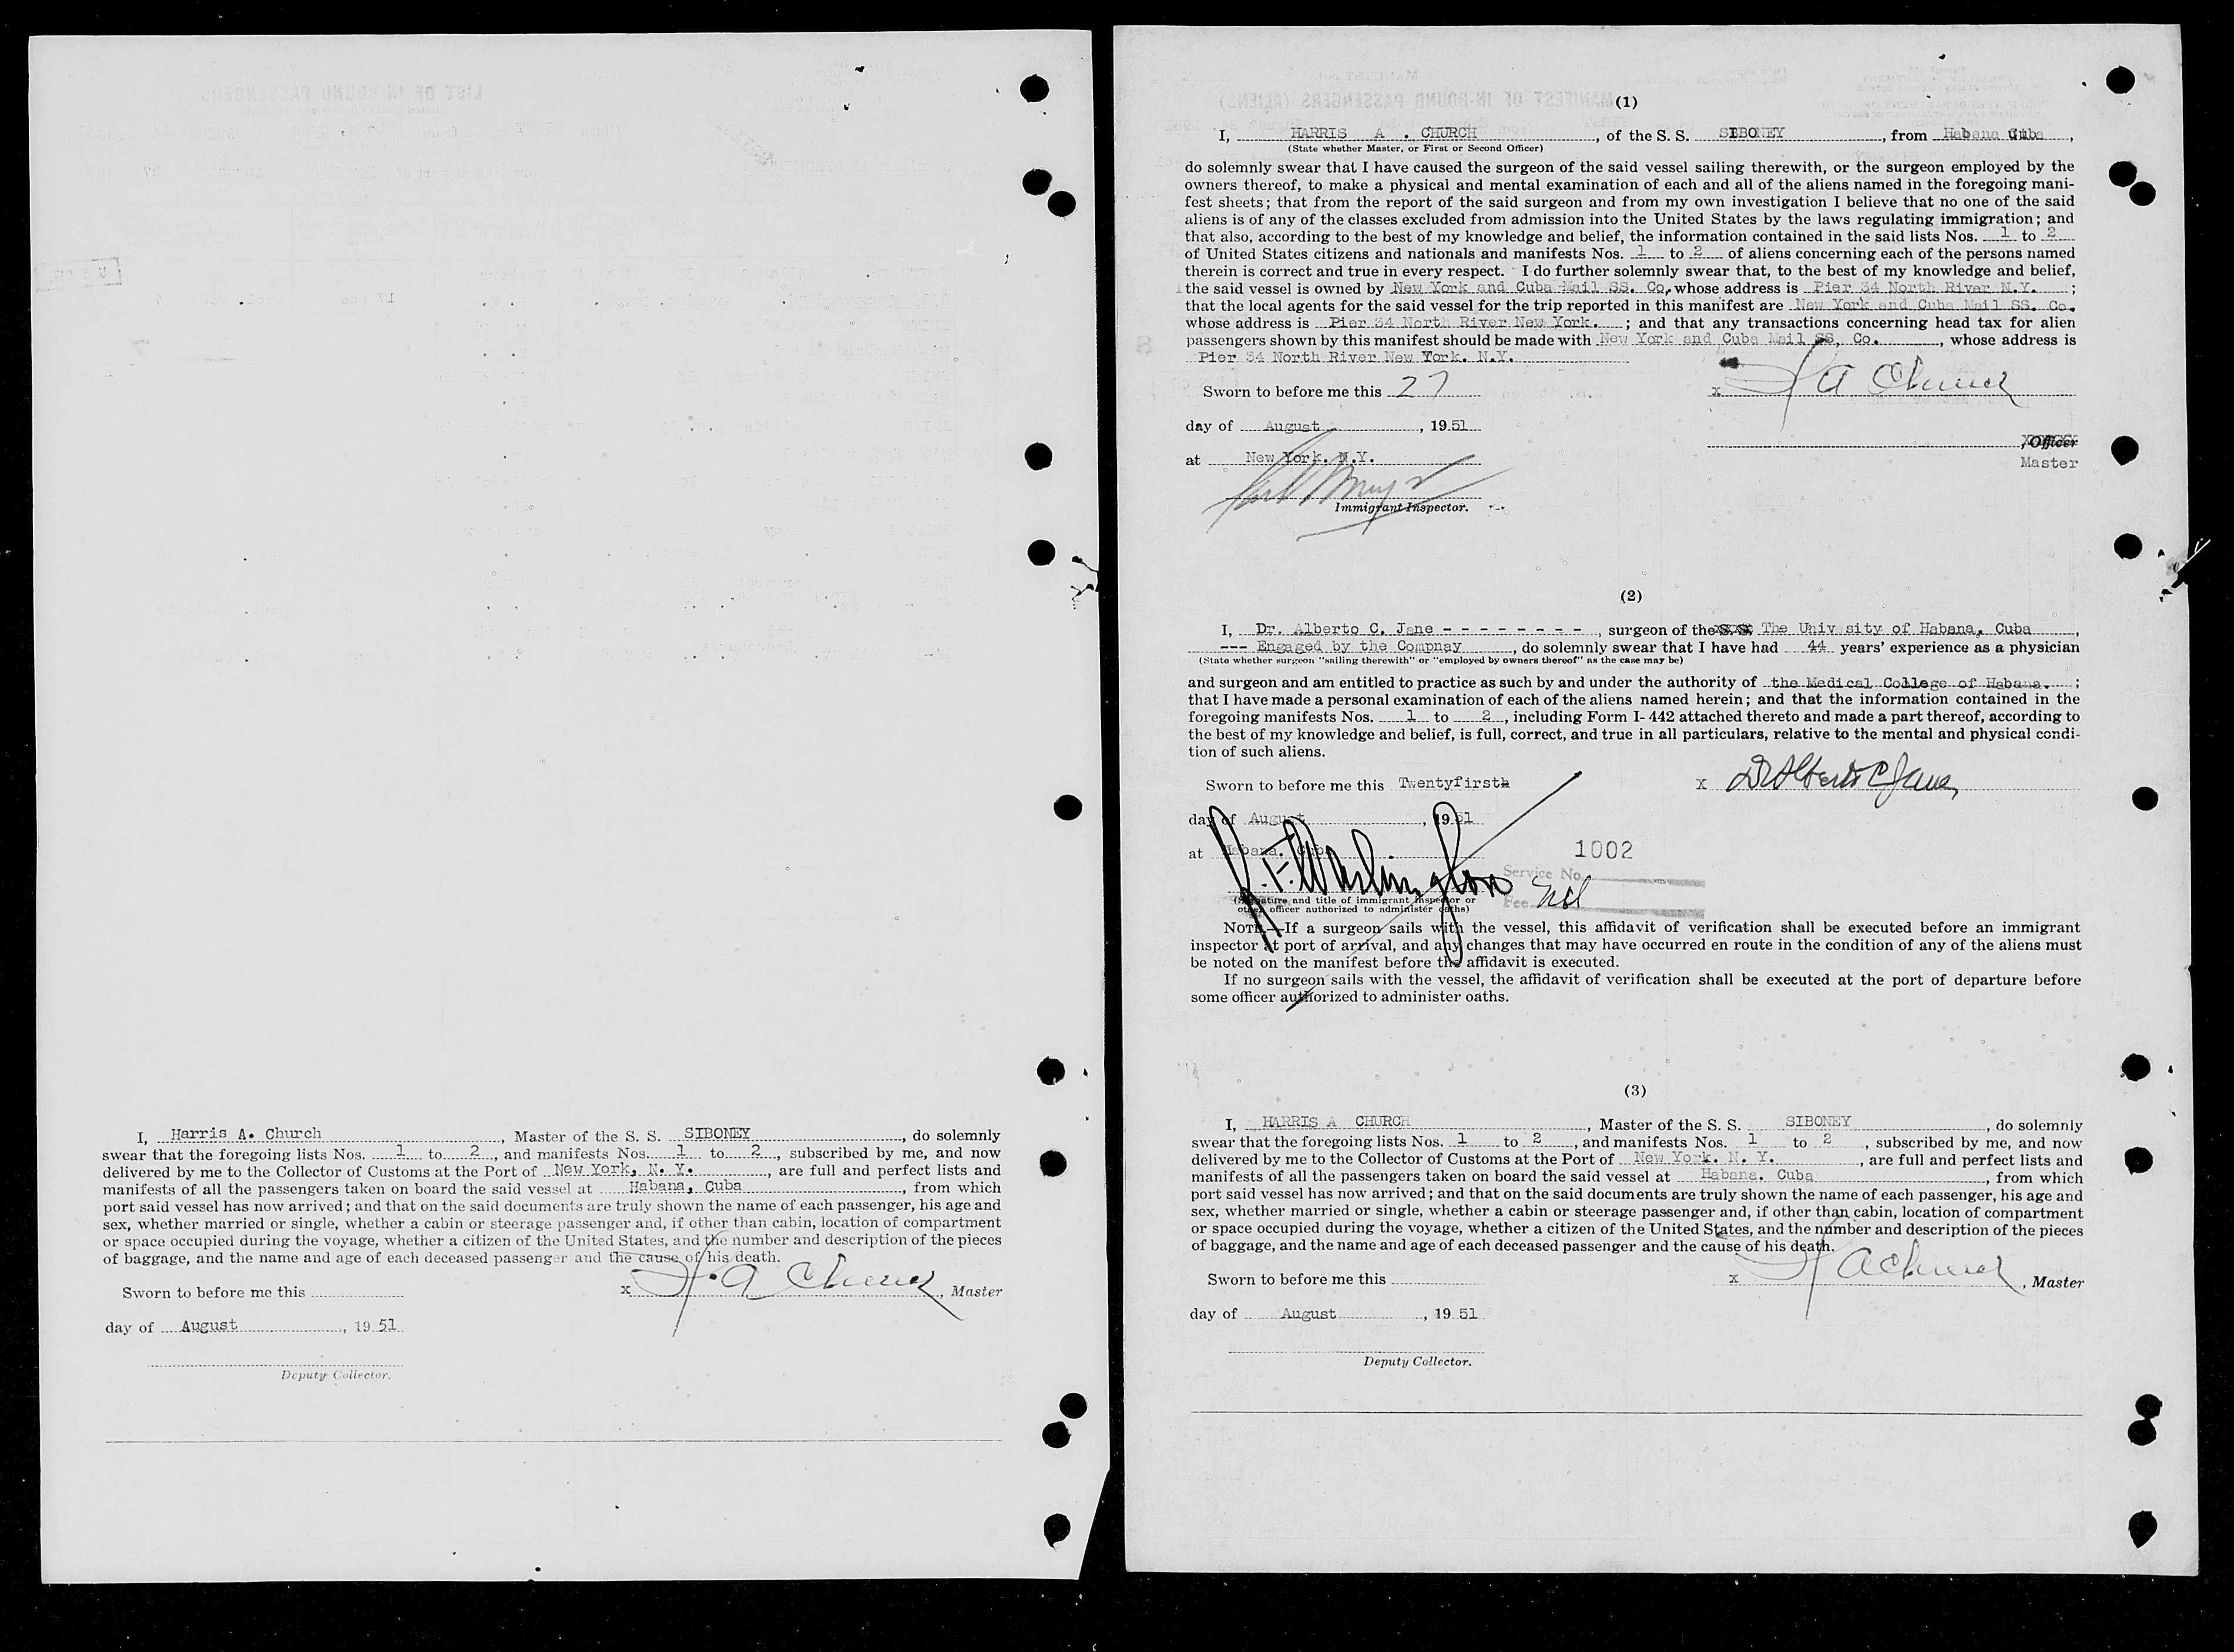 I, Harris A. Church, Master of the S. S. SIBONEY, do solemnly
swear that the foregoing lists Nos. 1 to 2, and manifests Nos. 1 to 2, subscribed by me, and now
delivered by me to the Collector of Customs at the Port of New York, N. Y., are full and perfect lists and
manifests of all the passengers taken on board the said vessel at Habana, Cuba, from which
port said vessel has now arrived; and that on the said documents are truly shown the name of each passenger, his age and
sex, whether married or single, whether a cabin or steerage passenger and, if other than cabin, location of compartment
or space occupied during the voyage, whether a citizen of the United States, and the number and description of the pieces
of baggage, and the name and age of each deceased passenger and the cause of his death.
Sworn to before me this
x H. A Church, Master
day of August, 19 51
Deputy Collector.
(1)
I, HARRIS A . CHURCH, of the S. S. SIBONEY, from Habana Cuba,
(State whether Master, or First or Second Officer)
do solemnly swear that I have caused the surgeon of the said vessel sailing therewith, or the surgeon employed by the
owners thereof, to make a physical and mental examination of each and all of the aliens named in the foregoing mani-
fest sheets; that from the report of the said surgeon and from my own investigation I believe that no one of the said
aliens is of any of the classes excluded from admission into the United States by the laws regulating immigration; and
that also, according to the best of my knowledge and belief, the information contained in the said lists Nos. 1 to 2
of United States citizens and nationals and manifests Nos. 1 to 2 of aliens concerning each of the persons named
therein is correct and true in every respect. I do further solemnly swear that, to the best of my knowledge and belief,
the said vessel is owned by New York and Cuba Mail SS. Co, whose address is Pier 34 North River N.Y. ;
that the local agents for the said vessel for the trip reported in this manifest are New York and Cuba Mail SS. Co.
whose address is Pier 34 North River New York. ; and that any transactions concerning head tax for alien
passengers shown by this manifest should be made with New York and Cuba Mail SS, Co., whose address is
Pier 34 North River New York. N.Y.
Sworn to before me this 27
x H A Church
day of August, 19 51
, Officer
at New York. N.Y.
Master
Immigrant Inspector.
(2)
I, Dr. Alberto C. Jane - - - - - - - -, surgeon of the S. S. The Univ sity of Habana, Cuba,
--- Engaged by the Compnay, do solemnly swear that I have had 44 years' experience as a physician
(State whether surgeon "sailing therewith" or "employed by owners thereof" as the case may be)
and surgeon and am entitled to practice as such by and under the authority of the Medical College of Habana. ;
that I have made a personal examination of each of the aliens named herein; and that the information contained in the
foregoing manifests Nos. 1 to 2, including Form I-442 attached thereto and made a part thereof, according to
the best of my knowledge and belief, is full, correct, and true in all particulars, relative to the mental and physical condi-
tion of such aliens.
Sworn to before me this Twentyfirst
x Dr Alberto C Jane
day of August, 19 51
at Habana. Cuba
1002
Service No.
Washington
Fee
(Signature and title of immigrant inspector or
other officer authorized to administer oaths)
NOTE.—If a surgeon sails with the vessel, this affidavit of verification shall be executed before an immigrant
inspector at port of arrival, and any changes that may have occurred en route in the condition of any of the aliens must
be noted on the manifest before the affidavit is executed.
If no surgeon sails with the vessel, the affidavit of verification shall be executed at the port of departure before
some officer authorized to administer oaths.
(3)
I, HARRIS A CHURCH, Master of the S. S. SIBONEY, do solemnly
swear that the foregoing lists Nos. 1 to 2, and manifests Nos. 1 to 2, subscribed by me, and now
delivered by me to the Collector of Customs at the Port of New York. N. Y., are full and perfect lists and
manifests of all the passengers taken on board the said vessel at Habana. Cuba, from which
port said vessel has now arrived; and that on the said documents are truly shown the name of each passenger, his age and
sex, whether married or single, whether a cabin or steerage passenger and, if other than cabin, location of compartment
or space occupied during the voyage, whether a citizen of the United States, and the number and description of the pieces
of baggage, and the name and age of each deceased passenger and the cause of his death.
Sworn to before me this
x H A Church, Master
day of August, 19 51
Deputy Collector.